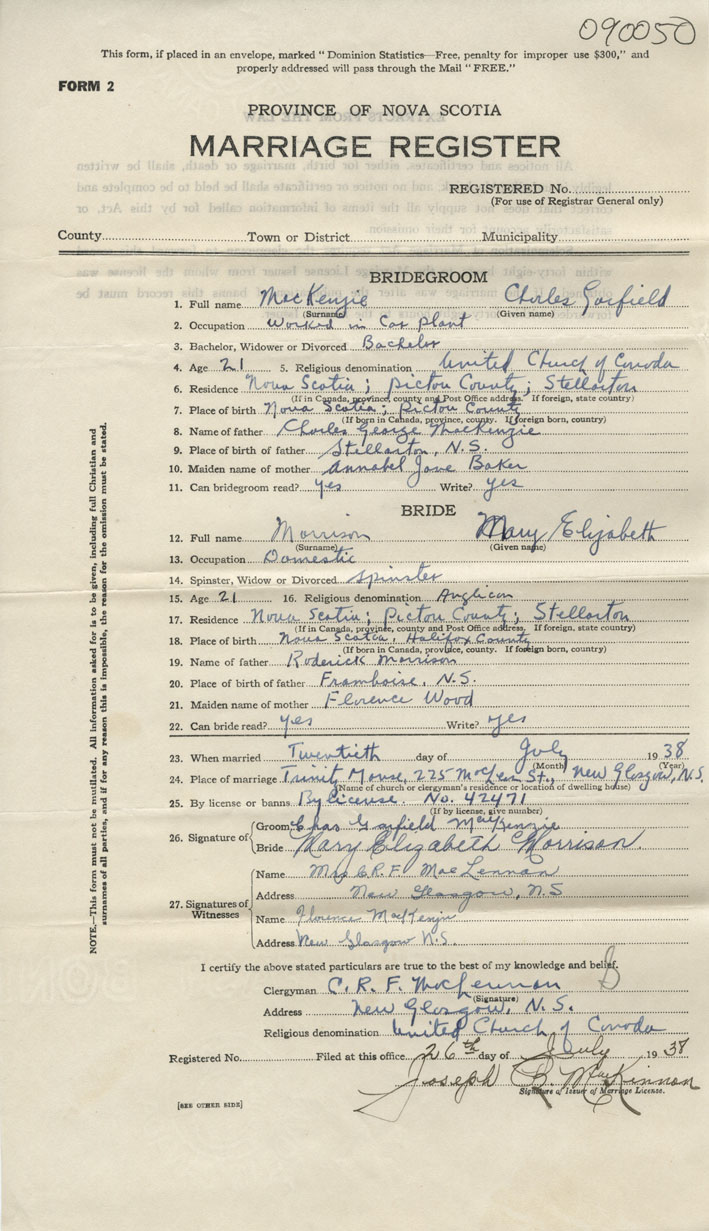 090050
This form, if placed in an envelope, marked "Dominion Statistics—Free, penalty for improper use $300," and
properly addressed will pass through the Mail "FREE."
FORM 2
PROVINCE OF NOVA SCOTIA
MARRIAGE REGISTER
REGISTERED No.
(For use of Registrar General only)
County Town or District Municipality
BRIDEGROOM
1. Full name MacKenzie Charles Garfield
(Surname) (Given name)
2. Occupation Worked in Car Plant
3. Bachelor, Widower or Divorced Bachelor
4. Age 21 5. Religious denomination United Church of Canada
6. Residence Nova Scotia; Pictou County; Stellarton
(If in Canada, province, county and Post Office address. If foreign, state country)
7. Place of birth Nova Scotia; Pictou County
(If born in Canada, province, county. If foreign born, country)
8. Name of father Charles George MacKenzie
9. Place of birth of father Stellarton, N.S.
10. Maiden name of mother Annabel Jane Baker
11. Can bridegroom read? yes Write? yes
BRIDE
12. Full name Morrison Mary Elizabeth
(Surname) (Given name)
13. Occupation Domestic
14. Spinster, Widow or Divorced Spinster
15. Age 21 16. Religious denomination Anglican
17. Residence Nova Scotia; Pictou County; Stellarton
(If in Canada, province, county and Post Office address. If foreign, state country)
18. Place of birth Nova Scotia, Halifax County
(If born in Canada, province, county. If foreign born, country)
19. Name of father Roderick Morrison
20. Place of birth of father Framboise, N.S.
21. Maiden name of mother Florence Wood
22. Can bride read? yes Write? yes
23. When married Twentieth day of July 1938
(Month) (Year)
24. Place of marriage Trinity Manse, 225 MacLean St., New Glasgow, N.S.
(Name of church or clergyman's residence or location of dwelling house)
25. By license or banns By license. No. 42471
(If by license, give number)
26. Signature of
Groom Chas Garfield MacKenzie
Bride Mary Elizabeth Morrison
27. Signatures of Witnesses
Name Mrs C.R.F. MacLennan
Address New Glasgow, N.S
Name Florence MacKenzie
Address New Glasgow N.S.
I certify the above stated particulars are true to the best of my knowledge and belief.
Clergyman C. R. F. MacLennan
(Signature)
Address New Glasgow, N.S.
Religious denomination United Church of Canada
Registered No. Filed at this office 26th day of July 1938
Joseph B. MacKinnon
Signature of Issuer of Marriage License.
[SEE OTHER SIDE]
NOTE.—This form must not be mutilated. All information asked for is to be given, including full Christian and
surnames of all parties, and if for any reason this is impossible, the reason for the omission must be stated.